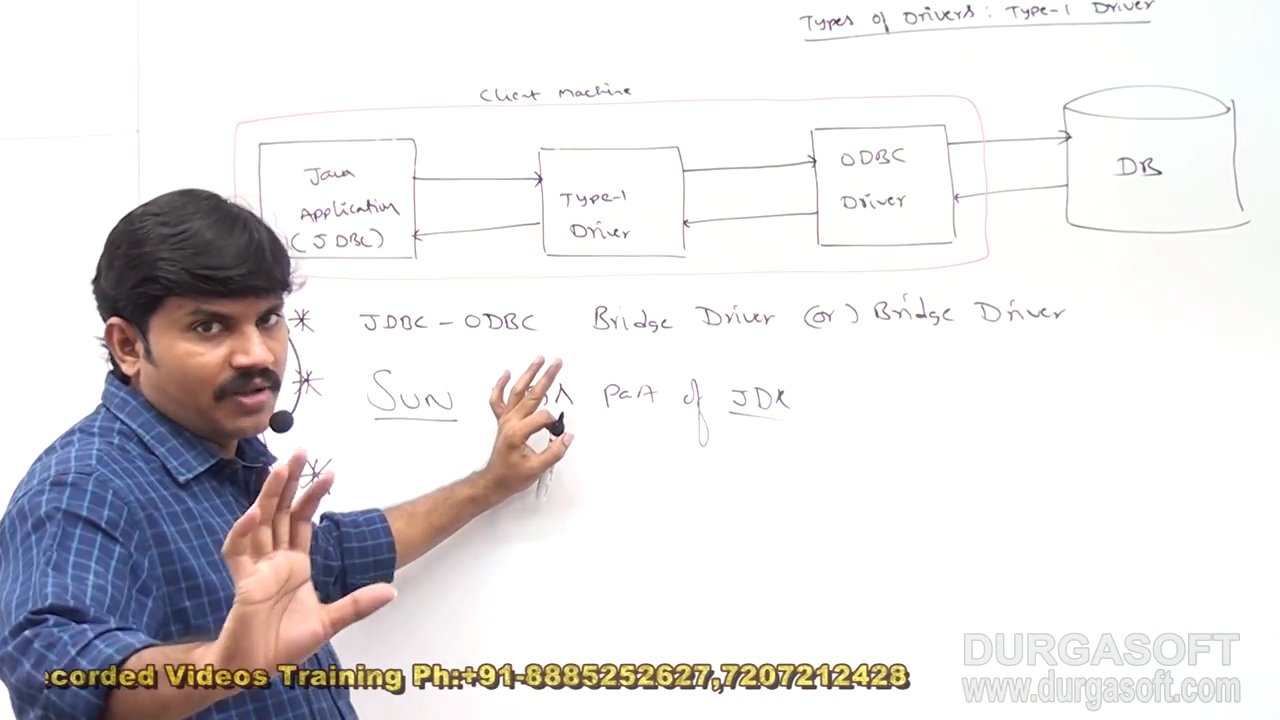 Types of Drivers : Type-1 Driver
Client Machine
Java
Application
(JDBC)
Type-1
Driver
ODBC
Driver
DB
* JDBC - ODBC Bridge Driver (or) Bridge Driver
* SUN part of JDK
*
ecorded Videos Training Ph:+91-8885252627,7207212428
DURGASOFT
www.durgasoft.com